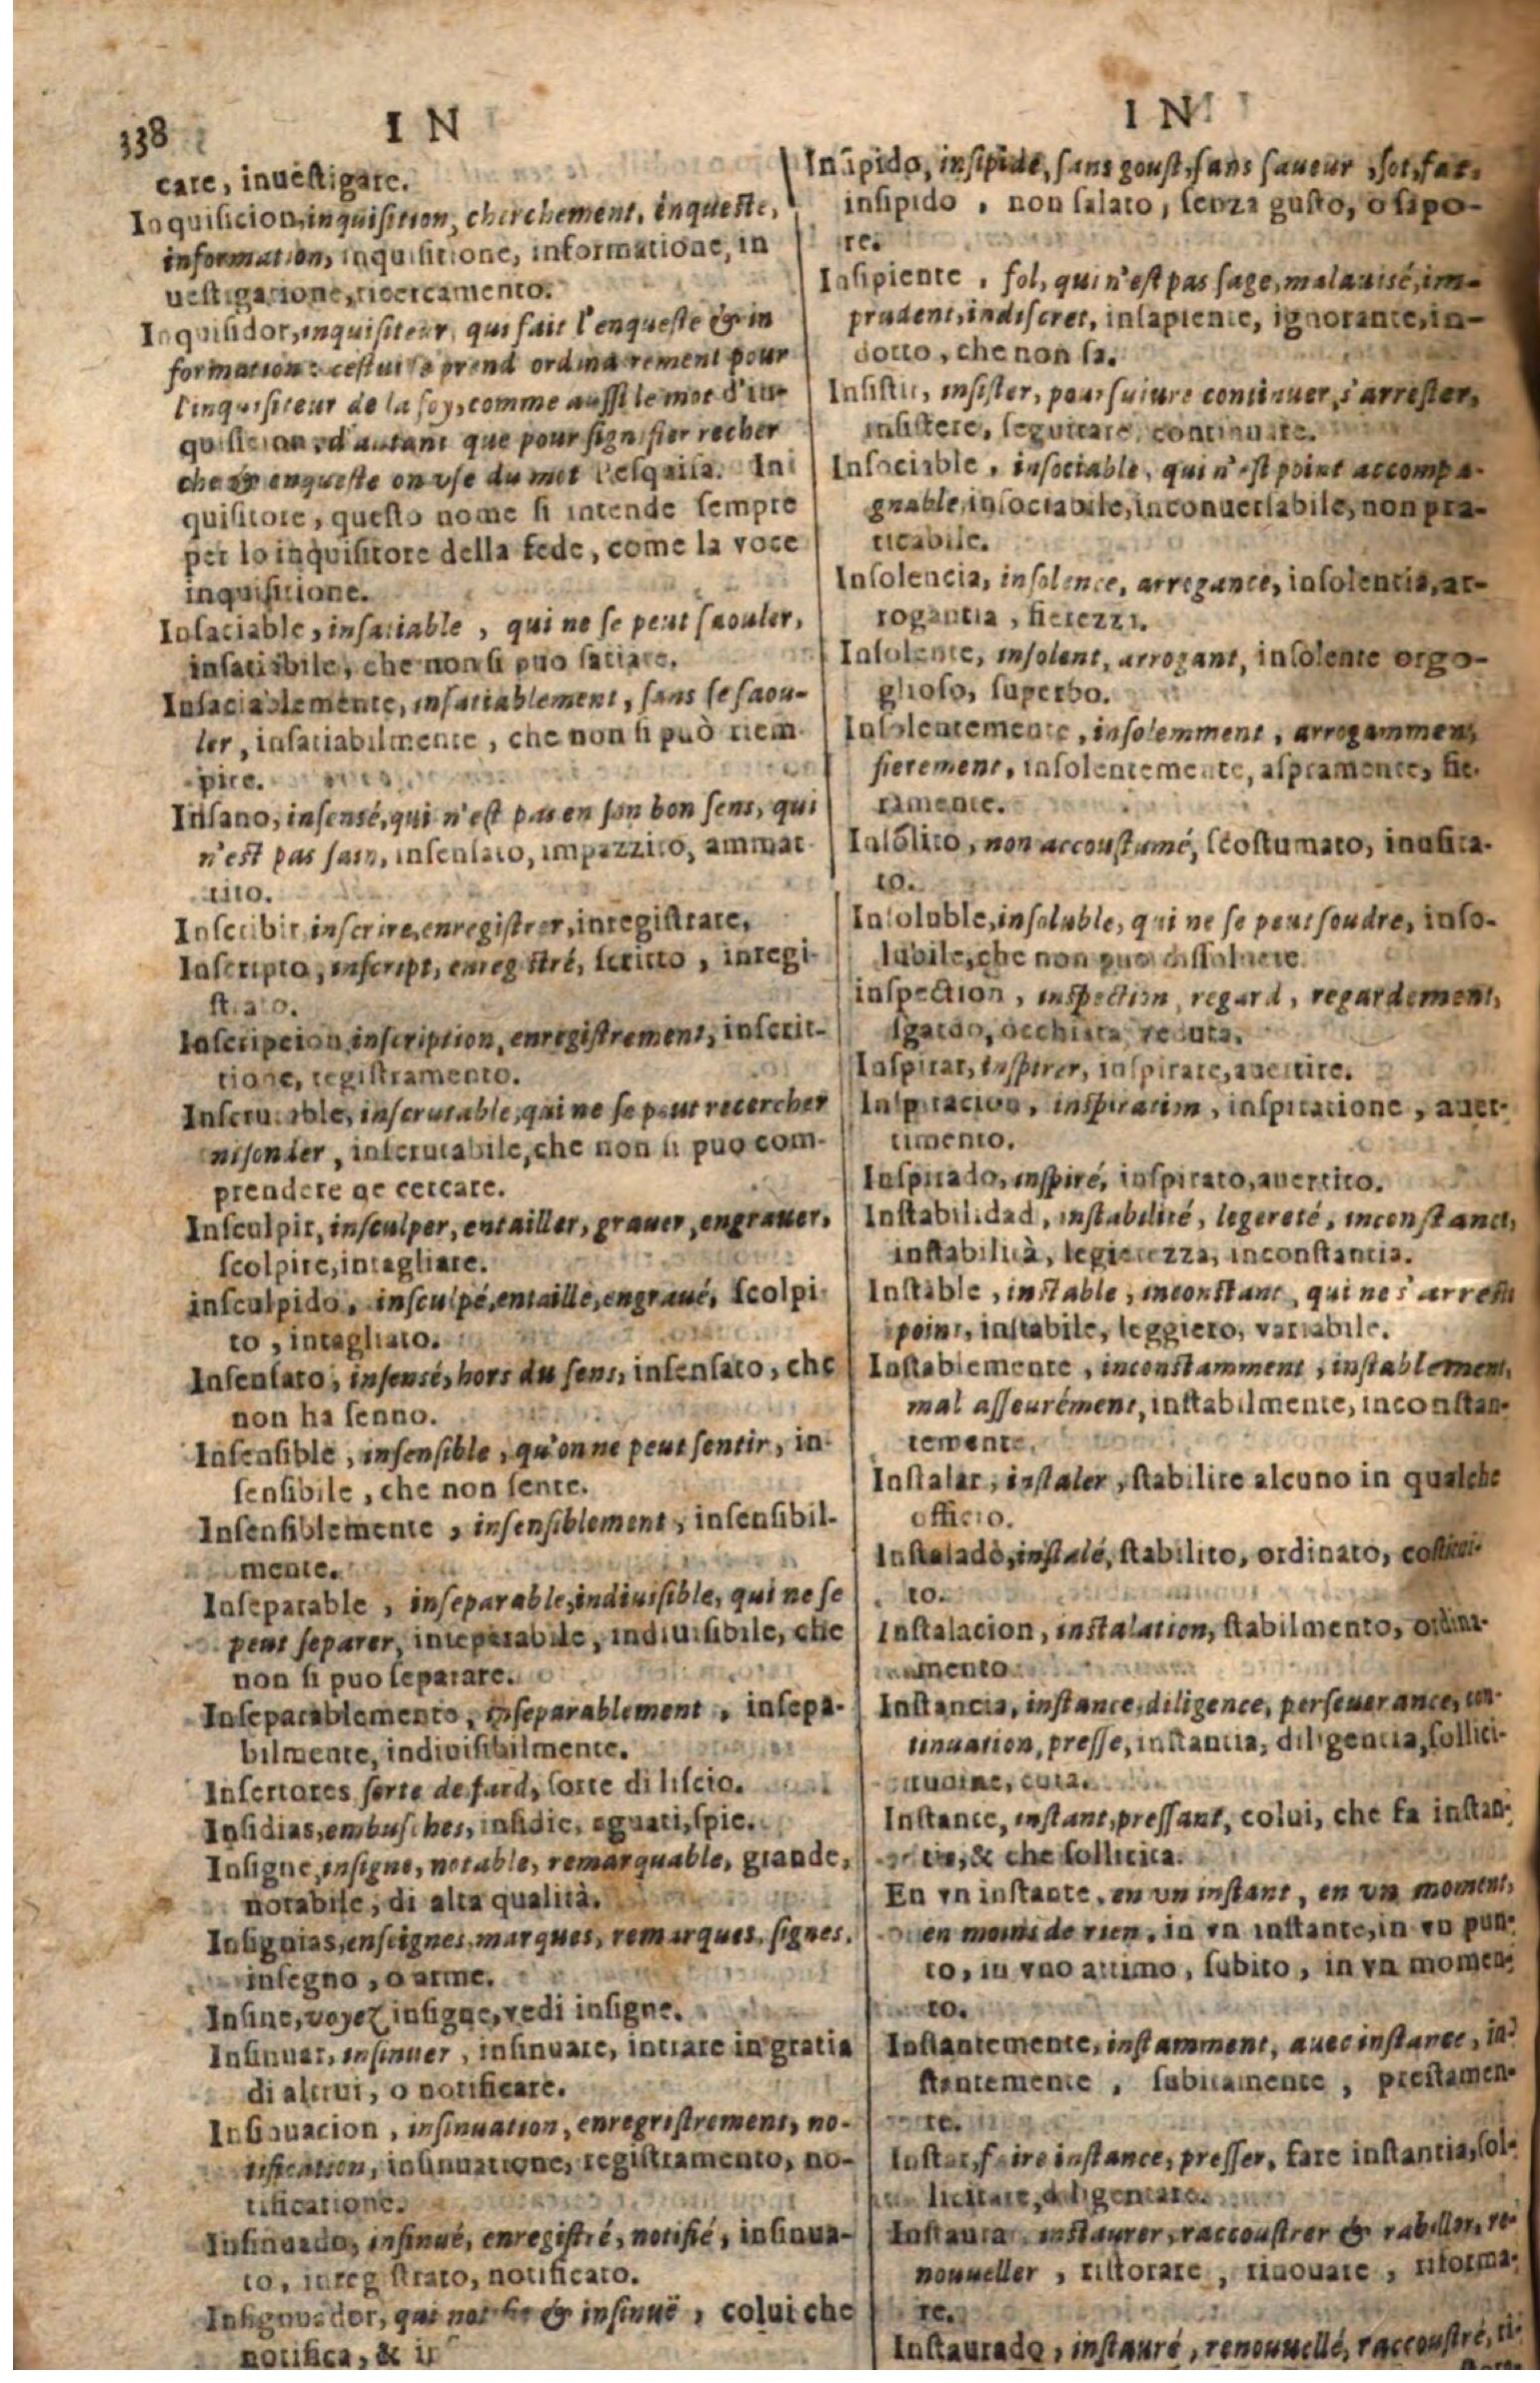 338
I N
care, inuestigare.
Inquisicion, inquisition, cherchement, enqueste,
information, inquisitione, informatione, in
uestigatione, ricercamento.
Inquisidor, inquisiteur, qui fait l'enqueste & in
formation: cestui se prend ordinairement pour
l'inquisiteur de la foy, comme aussi le mot d'in-
quisition, d'autant que pour signifier recher
che & enqueste on vse du mot Pesquisa. In
quisitore, questo nome si intende sempre
per lo inquisitore della fede, come la voce
inquisitione.
Insaciable, insatiable, qui ne se peut saouler,
insatiabile, che non si puo satiare.
Insaciablemente, insatiablement, sans se saou-
ler, insatiabilmente, che non si può riem
pire.
Insano, insensé, qui n'est pas en son bon sens, qui
n'est pas sain, insensato, impazzito, ammat
tito.
Inscribir, inscrire, enregistrer, inregistrare,
Inscripto, inscript, enregistré, scritto, inregi-
strato.
Inscripcion, inscription, enregistrement, inscrit-
tione, registramento.
Inscrutable, inscrutable, qui ne se peut recercher
ni sonder, inscrutabile, che non si puo com-
prendere ne cercare.
Insculpir, insculper, entailler, grauer, engrauer,
scolpire, intagliare.
insculpido, insculpé, entaillé, engraué, scolpi
to, intagliato.
Insensato, insensé, hors du sens, insensato, che
non ha senno.
Insensible, insensible, qu'on ne peut sentir, in-
sensibile, che non sente.
Insensiblemente, insensiblement, insensibil-
mente.
Inseparable, inseparable, indiuisible, qui ne se
peut separer, inseparabile, indiuisibile, che
non si puo separare.
Inseparablemente, inseparablement, insepa-
bilmente, indivisibilmente.
Insertores sorte de fard, sorte di liscio.
Insidias, embusches, insidie, aguati, spie.
Insigne, insigne, notable, remarquable, grande,
notabile, di alta qualità.
Insignias, enseignes, marques, remarques, signes.
insegno, o arme.
Insine, voyez insigne, vedi insigne.
Insinuar, insinuer, insinuare, intrare in gratia
di altrui, o notificare.
Insinuacion, insinuation, enregristrement, no-
tification, insinuatione, registramento, no-
tificatione.
Insinuado, insinué, enregistré, notifié, insinua-
to, inregistrato, notificato.
Insignuador, qui notifie & insinuë, colui che
notifica, &
I N
Insipido, insipide, sans goust, sans saueur, sot, fat,
insipido, non salato, senza gusto, o sapo-
re.
Insipiente, fol, qui n'est pas sage, malauisé, im-
prudent, indiscret, insapiente, ignorante, in-
dotto, che non sa.
Insistir, insister, poursuiure continuer, s'arrester,
insistere, seguitare, continuare.
Insociable, insociable, qui n'est point accompa-
gnable, insociabile, inconuersabile, non pra-
ticabile.
Insolencia, insolence, arrogance, insolentia, ar-
rogantia, fierezza.
Insolente, insolent, arrogant, insolente orgo-
glioso, superbo.
Insolentemente, insolemment, arrogamment,
fierement, insolentemente, aspramente, fie-
ramente.
Insólito, non accoustumé, scostumato, inusita-
to.
Insoluble, insoluble, qui ne se peut soudre, inso-
lubile, che non puo dissoluere.
inspection, inspection, regard, regardement,
sgardo, occhiata, veduta.
Inspirar, inspirer, inspirare, auertire.
Inspiracion, inspiration, inspiratione, auer-
timento.
Inspirado, inspiré, inspirato, auertito.
Instabilidad, instabilité, legereté, inconstance,
instabilità, legierezza, inconstantia.
Instable, instable, inconstant, qui ne s'arreste
point, instabile, leggiero, variabile.
Instablemente, inconstamment, instablement,
mal asseurément, instabilmente, inconstan-
temente.
Instalar, instaler, stabilire alcuno in qualche
officio.
Instalado, instalé, stabilito, ordinato, costitui-
to.
Instalacion, instalation, stabilmento, ordina-
mento.
Instancia, instance, diligence, perseuerance, con-
tinuation, presse, instantia, diligentia, sollici-
tudine, cura.
Instante, instant, pressant, colui, che fa instan-
tia, & che sollicita.
En vn instante, en vn instant, en vn moment,
en moins de rien, in vn instante, in vn pun-
to, in vno attimo, subito, in vn momen-
to.
Instantemente, instamment, auec instance, in-
stantemente, subitamente, prestamen-
te.
Instar, faire instance, presser, fare instantia, sol-
licitare, diligentare.
Instaurar, instaurer, raccoustrer & rabiller, re-
nouueller, ristorare, rinouare, riforma-
re.
Instaurado, instauré, renouuellé, raccoustré, ri-